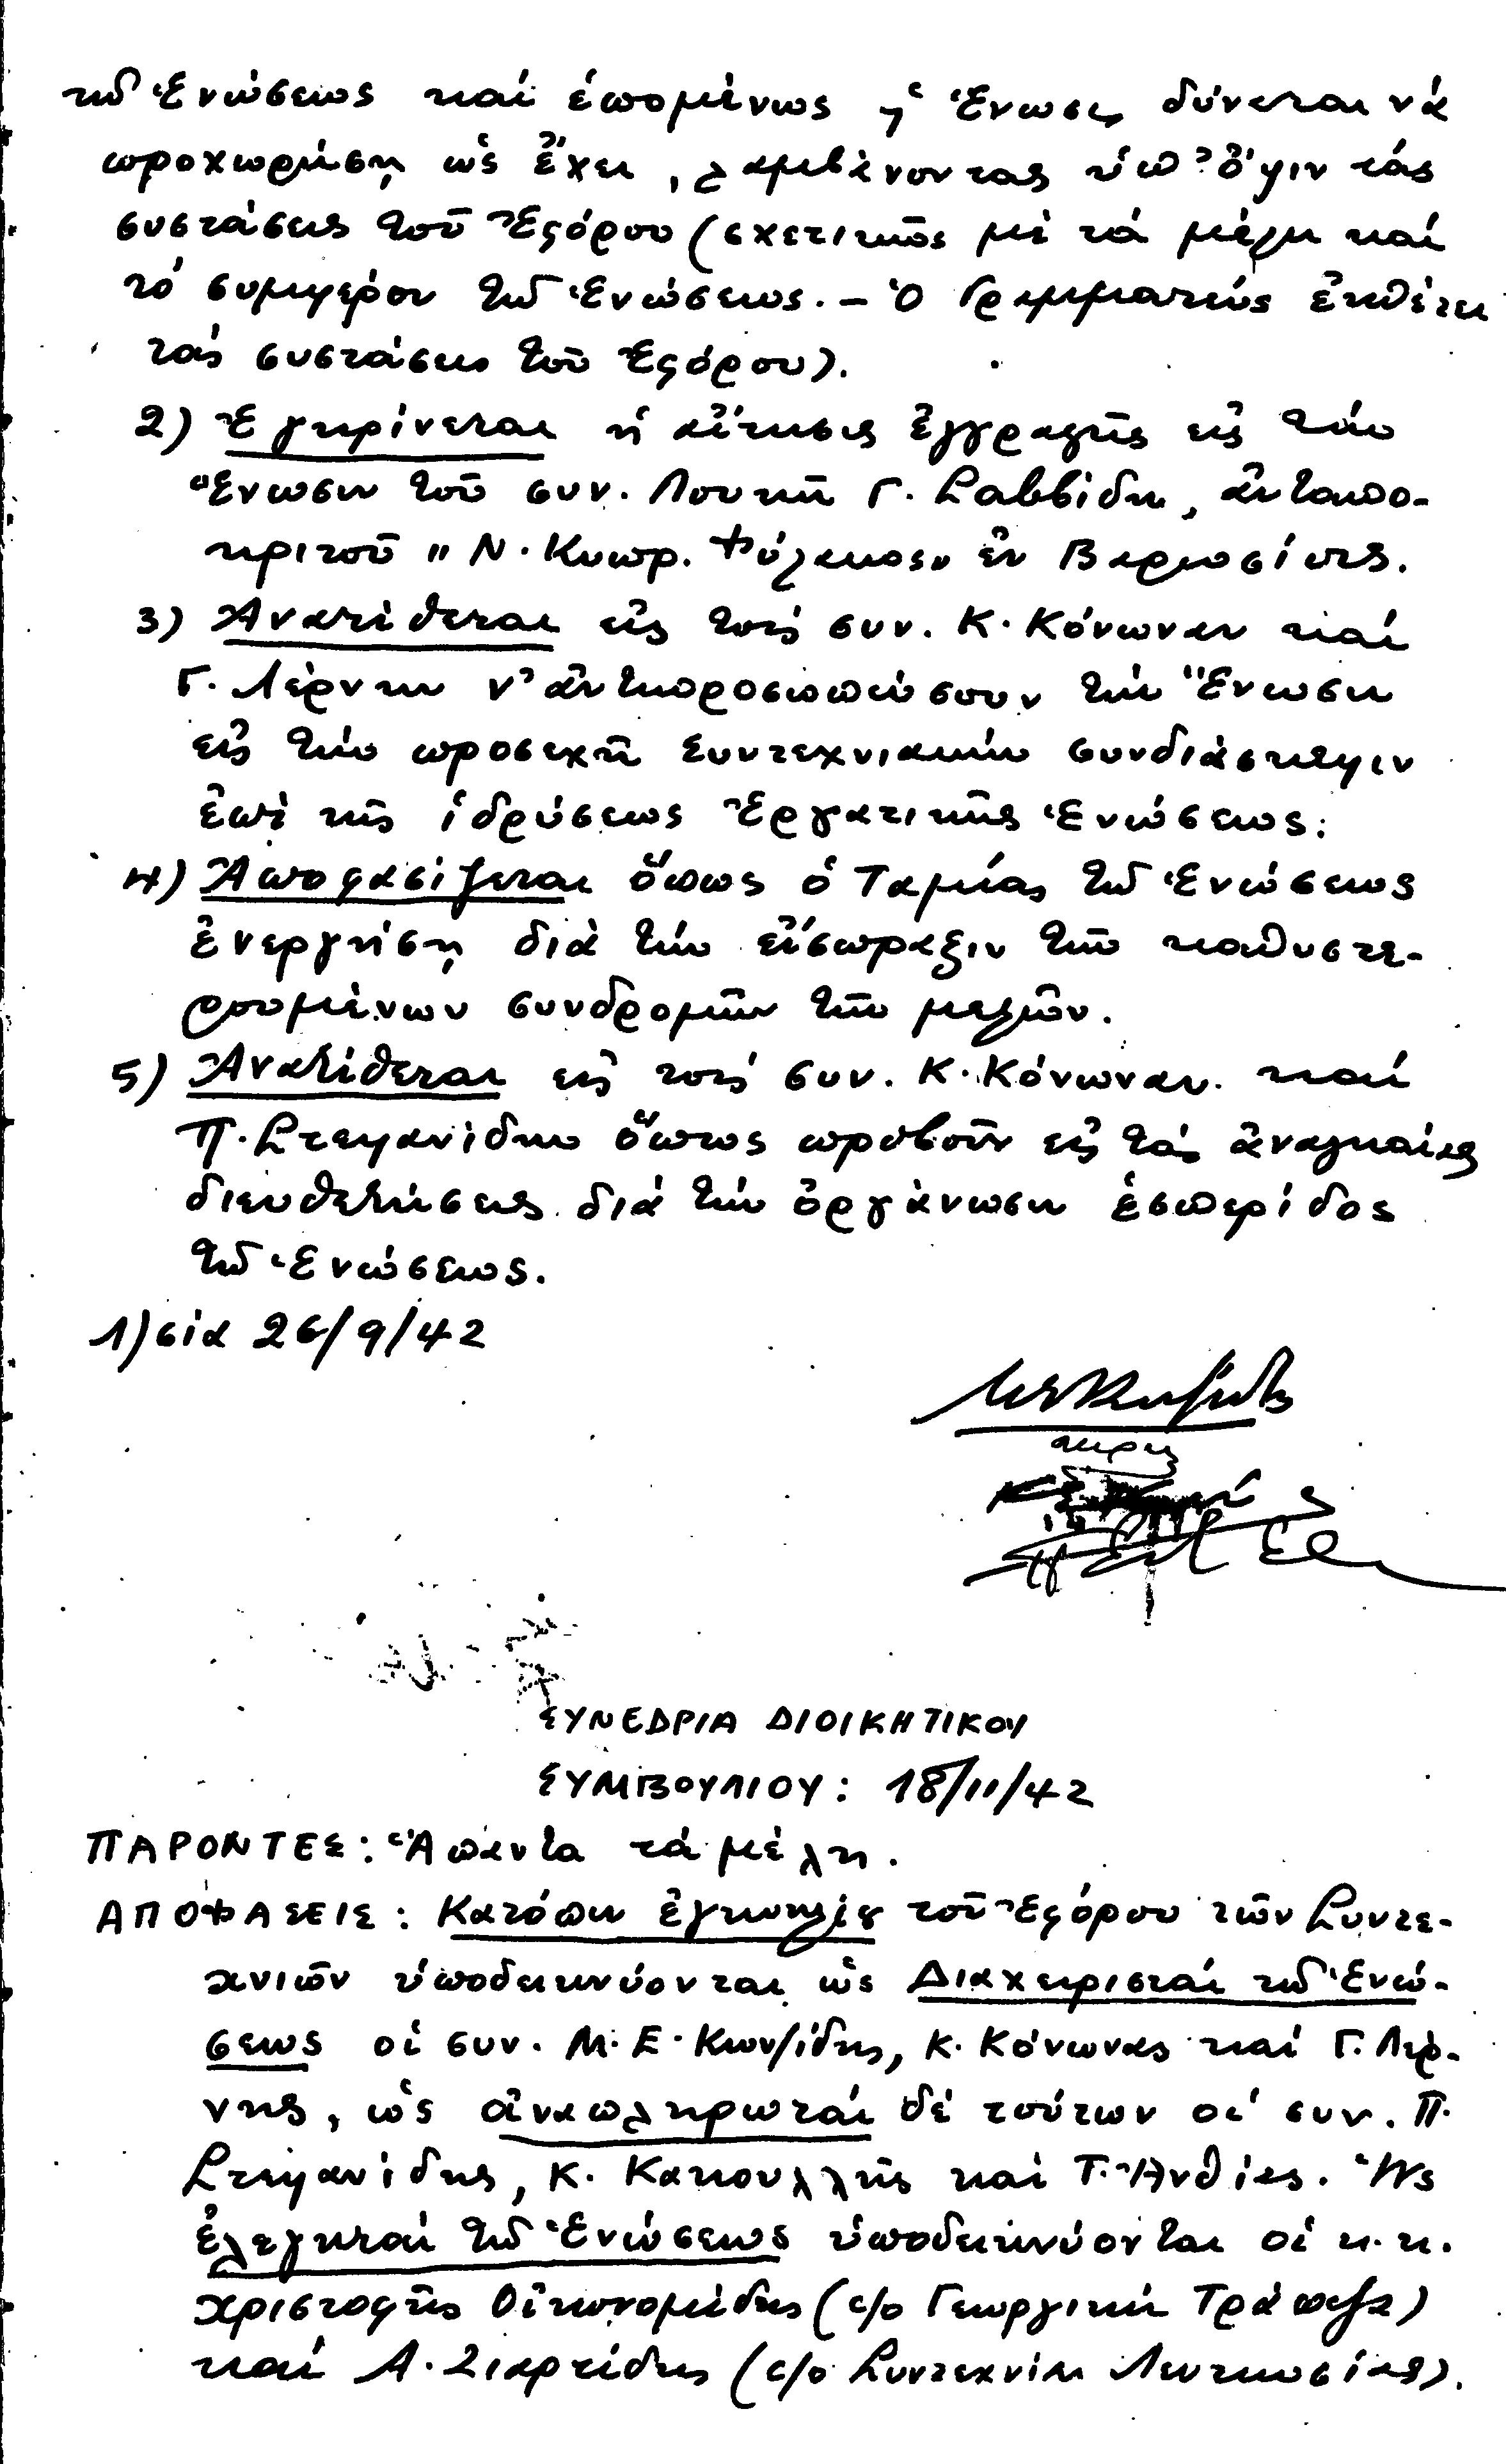 τῆς Ἑνώσεως καί ἑπομένως ἡ Ἕνωσις δύναται νά
προχωρήση ὡς ἔχει, λαμβάνοντας ὑπ' ὄψιν τάς
συστάσεις τοῦ Ἐφόρου (σχετικῶς μέ τά μέλη καί
τό συμφέρον τῆς Ἑνώσεως. – Ὁ Γραμματεύς ἐκθέτει
τάς συστάσεις τοῦ Ἐφόρου).
2) Ἐγκρίνεται ἡ αἴτησις ἐγγραφῆς εἰς τήν
Ἕνωσιν τοῦ συν. Λουκῆ Γ. Σαββίδη, ἀνταπο-
κριτοῦ "Ν. Κυπρ. Φύλακος" ἐν Βαρωσίοις.
3) Ἀνατίθεται εἰς τούς συν. Κ. Κόνωναν καί
Γ. Λέρνην ν' ἀντιπροσωπεύσουν τήν Ἕνωσιν
εἰς τήν προσεχῆ συντεχνιακήν συνδιάσκεψιν
ἐπί τῆς ἱδρύσεως Ἐργατικῆς Ἑνώσεως.
4) Ἀποφασίζεται ὅπως ὁ Ταμίας τῆς Ἑνώσεως
ἐνεργήση διά τήν εἴσπραξιν τῶν καθυστε-
ρουμένων συνδρομῶν τῶν μελῶν.
5) Ἀνατίθεται εἰς τούς συν. Κ. Κόνωναν καί
Π. Στεφανίδην ὅπως προβοῦν εἰς τάς ἀναγκαίας
διευθετήσεις διά τήν ὀργάνωσιν ἑσπερίδος
τῆς Ἑνώσεως.
Λ)σία 26/9/42
ΣΥΝΕΔΡΙΑ ΔΙΟΙΚΗΤΙΚΟΥ
ΣΥΜΒΟΥΛΙΟΥ: 18/11/42
ΠΑΡΟΝΤΕΣ: Ἅπαντα τά μέλη.
ΑΠΟΦΑΣΕΙΣ: Κατόπιν ἐγκυκλίου τοῦ Ἐφόρου τῶν Συντε-
χνιῶν ὑποδεικνύονται ὡς Διαχειρισταί τῆς Ἑνώ-
σεως οἱ συν. Μ. Ε. Κων/ίδης, Κ. Κόνωνας καί Γ. Λέρ-
νης, ὡς ἀναπληρωταί δέ τούτων οἱ συν. Π.
Στεφανίδης, Κ. Κακουλλῆς καί Τ. Ἀνθίας. Ὡς
ἐλεγκταί τῆς Ἑνώσεως ὑποδεικνύονται οἱ κ.κ.
Χριστοφῆς Οἰκονομίδης (c/o Γεωργική Τράπεζα)
καί Α. Σιαρτίδης (c/o Συντεχνίαι Λευκωσίας).